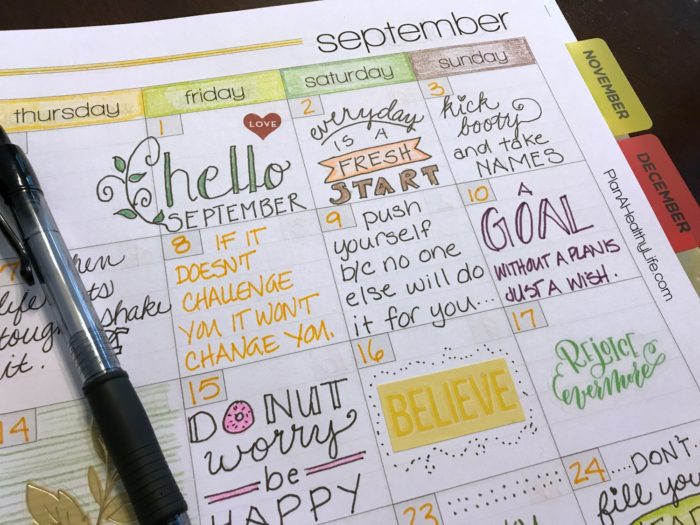 september
thursday
friday
saturday
sunday
1
LOVE
hello
SEPTEMBER
2
everyday
IS A
FRESH
START
3
kick
booty
and take
NAMES
7
shake
it.
8
IF IT
DOESN'T
CHALLENGE
YOU IT WON'T
CHANGE YOU.
9
push
yourself
b/c no one
else will do
it for you...
10
A
GOAL
WITHOUT A PLAN IS
JUST A WISH.
14
15
DONUT
worry
be
HAPPY
16
BELIEVE
17
Rejoice
Evermore
23
24
....DON'T
fill you
NOVEMBER
DECEMBER
PlanAHealthyLife.com